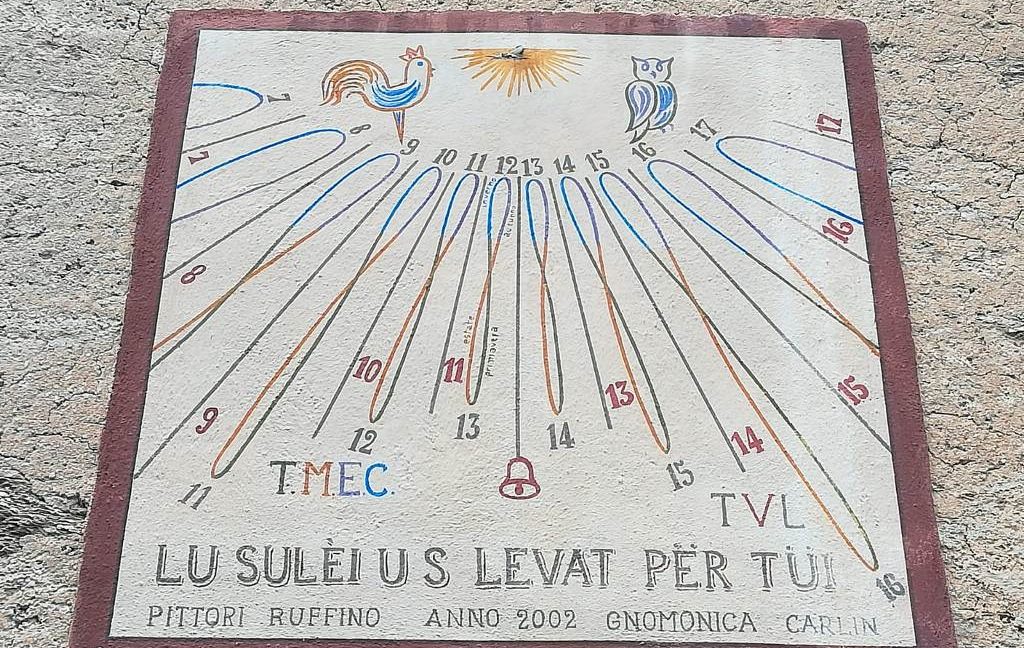 7
8
9 10 11 12 13 14 15 16 17
17
7
inverno
autunno
16
8
estate
primavera
10 11 13 15
9
12 13 14 14
11 15
T.M.E.C.
TVL
16
LU SULÈI U S LEVAT PËR TÜI
PITTORI RUFFINO ANNO 2002 GNOMONICA CARLIN